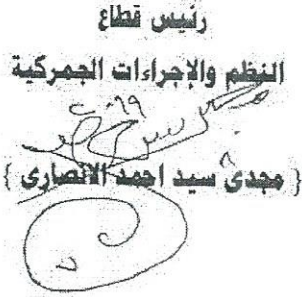 رئيس قطاع
النظم والإجراءات الجمركية
{ مجدى سيد احمد الانصارى }